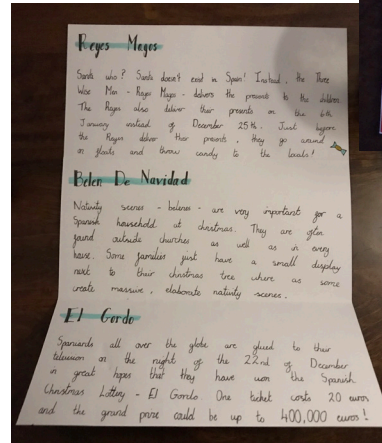 Reyes Magos
Santa who? Santa doesn't exist in Spain! Instead, the Three
Wise Men - Reyes Magos - delivers the presents to the children
The Reyes also deliver their presents on the 6th
January instead of December 25th. Just before
the Reyes deliver their presents, they go around
on floats and throw candy to the locals!
Belen De Navidad
Nativity scenes - belenes - are very important for a
Spanish household at christmas. They are often
found outside churches as well as in every
house. Some families just have a small display
next to their christmas tree where as some
create massive, elaborate nativity scenes.
El Gordo
Spaniards all over the globe are glued to their
television on the night of the 22nd of December
in great hopes that they have won the Spanish
Christmas Lottery - El Gordo One ticket costs 20 euros
and the grand prize could be up to 400,000 euros!